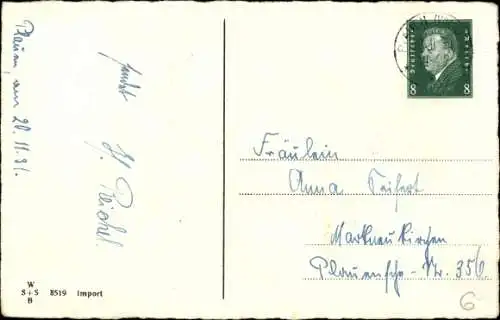 Plauen, am 20.11.31.
sendet
H. Reichel
W
S+S
B
8519 Import
Deutsches Reich
8 8
Fräulein
Anna Seifert
Markneukirchen
Plauensche-Str. 356
6